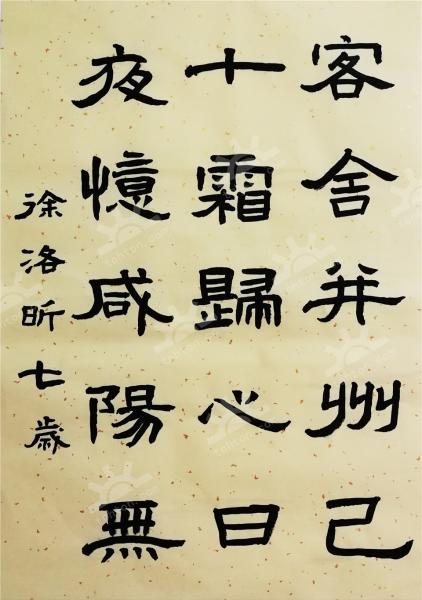 客舍并州已
十霜歸心日
夜憶咸陽無
徐洛昕七歲